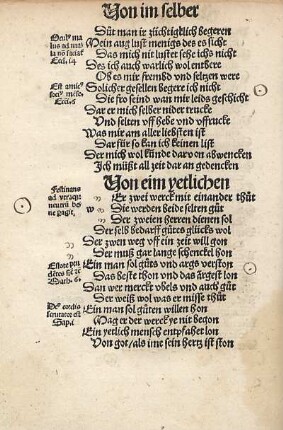 Von im selber
Oculꝰ ma
lus ad ma
la nō sariat
Eccl. 14
Est amicꝰ
Eccl. 6
Dut man ir züchtigklich begeren
Mein aug lust menigs des es sicht
Das mich nit lustet sehe ichs nicht
Des ich auch warlich wol entbere
Ob es mir frembd und seltzen were
Solicher gesellen begere ich nicht
Die fro seind wan mir leids geschicht
Dar er mich selber nider trucke
Und selten uff hebe und uffrucke
Was mir am aller liebsten ist
Dar für so kan ich keinen list
Der mich wol künde dar von abwencken
Ich müßt all zeit dar an gedencken
Von eim yetlichen
Festinans
ad utraque
neutrū be
ne pagit,
Estote pru
dētes sic ut
Math. 6
Deꝰ cordis
scrutator est
Sap. 1
Er zwei werck mit einander thůt
Die werden beide selten gůt
Der zweien herren dienen sol
Der selb bedarff gůtes glücks wol
Der zwen weg uff ein zeit will gon
Der muß gar lange schenckel hon
Ein man sol gůts und args verston
Das beste thon und das ärgest lon
Dan wer merckt übels und auch gůt
Der weiß wol was er misse thůt
Ein man sol gůten willen hon
Mag er der wercke ye nit began
Ein yetlich mensch entpfahet lon
Von got/als im sein hertz ist ston